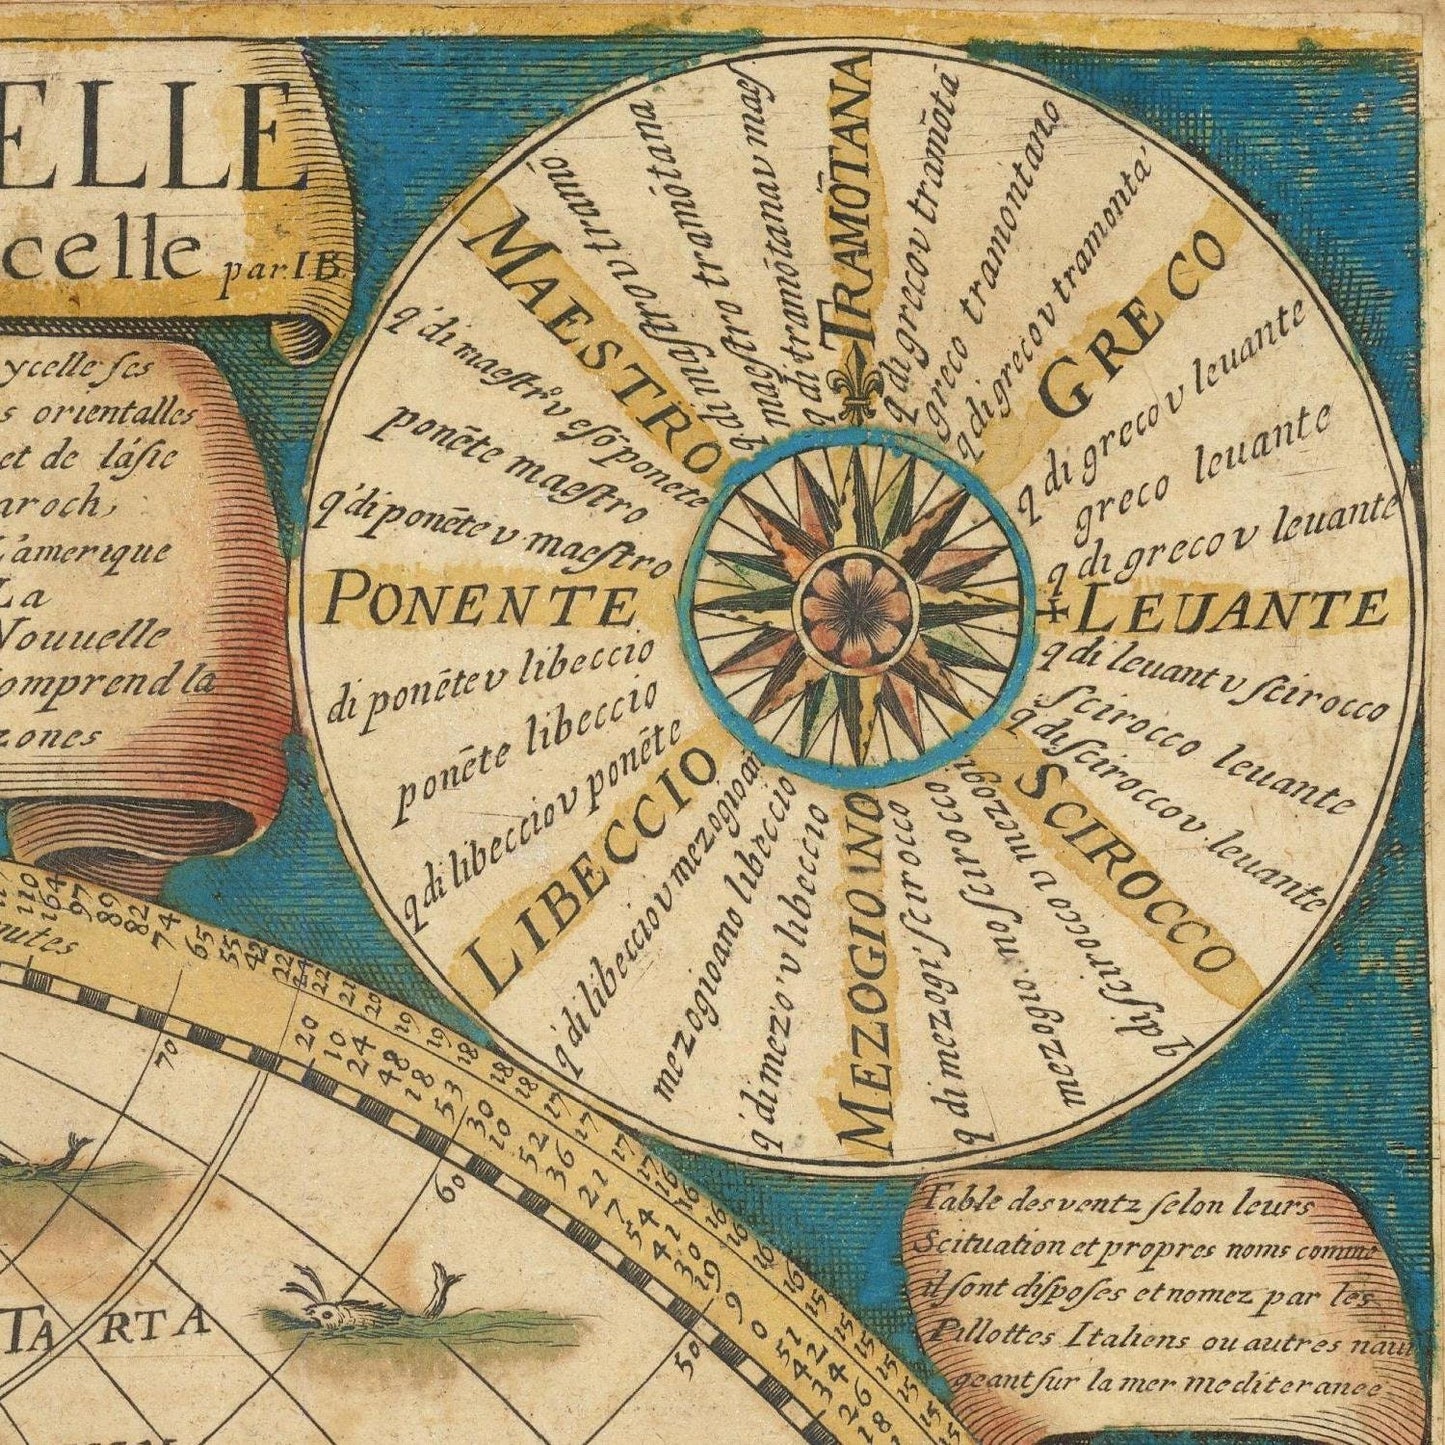 ELLE
celle par IB
ycelle ses
s orientalles
et de lásie
aroch,
L'amerique
La
Nouuelle
omprend la
zones
TRAMŌTANA
q di grecov tramōta
greco tramontano
q di greco v tramonta'
GRECO
q di greco v leuante
greco leuante
q di greco v leuante
LEUANTE
q di leuant v scirocco
scirocco leuante
q di scirocco v. leuante
SCIROCCO
q di scirocco v mezogi
mezzogio. no scirocco
q di mezogi scirocco
MEZOGIOINO
q' di mezo' v libeccio
mezogioano libeccio
q' di libeccio v mezogioan
LIBECCIO
q di libeccio v ponēte
ponēte libeccio
di ponēte v libeccio
PONENTE
q' di ponēte v maestro
ponēte maestro
q' di maestro v esō ponete
MAESTRO
q di maestro v tramō
maestro tramōtana
q di tramōtana v maes
Table des ventz selon leurs
Scituation et propres noms comme
il sont disposes et nomez par les
Pillottes Italiens ou autres naui
geant sur la mer mediteranee
nutes
110 164 97 89 82 74 65 55 42 22 14 22 21 20 19 19 18 18 18 17 17 17 17 16 16 16 16 16 16 15 15 15 15 15 15 15
20 10 24 48 18 53 30 10 52 36 21 7 54 41 30 19 9 0 51 42 34 26 18
70
60
50
TARTA